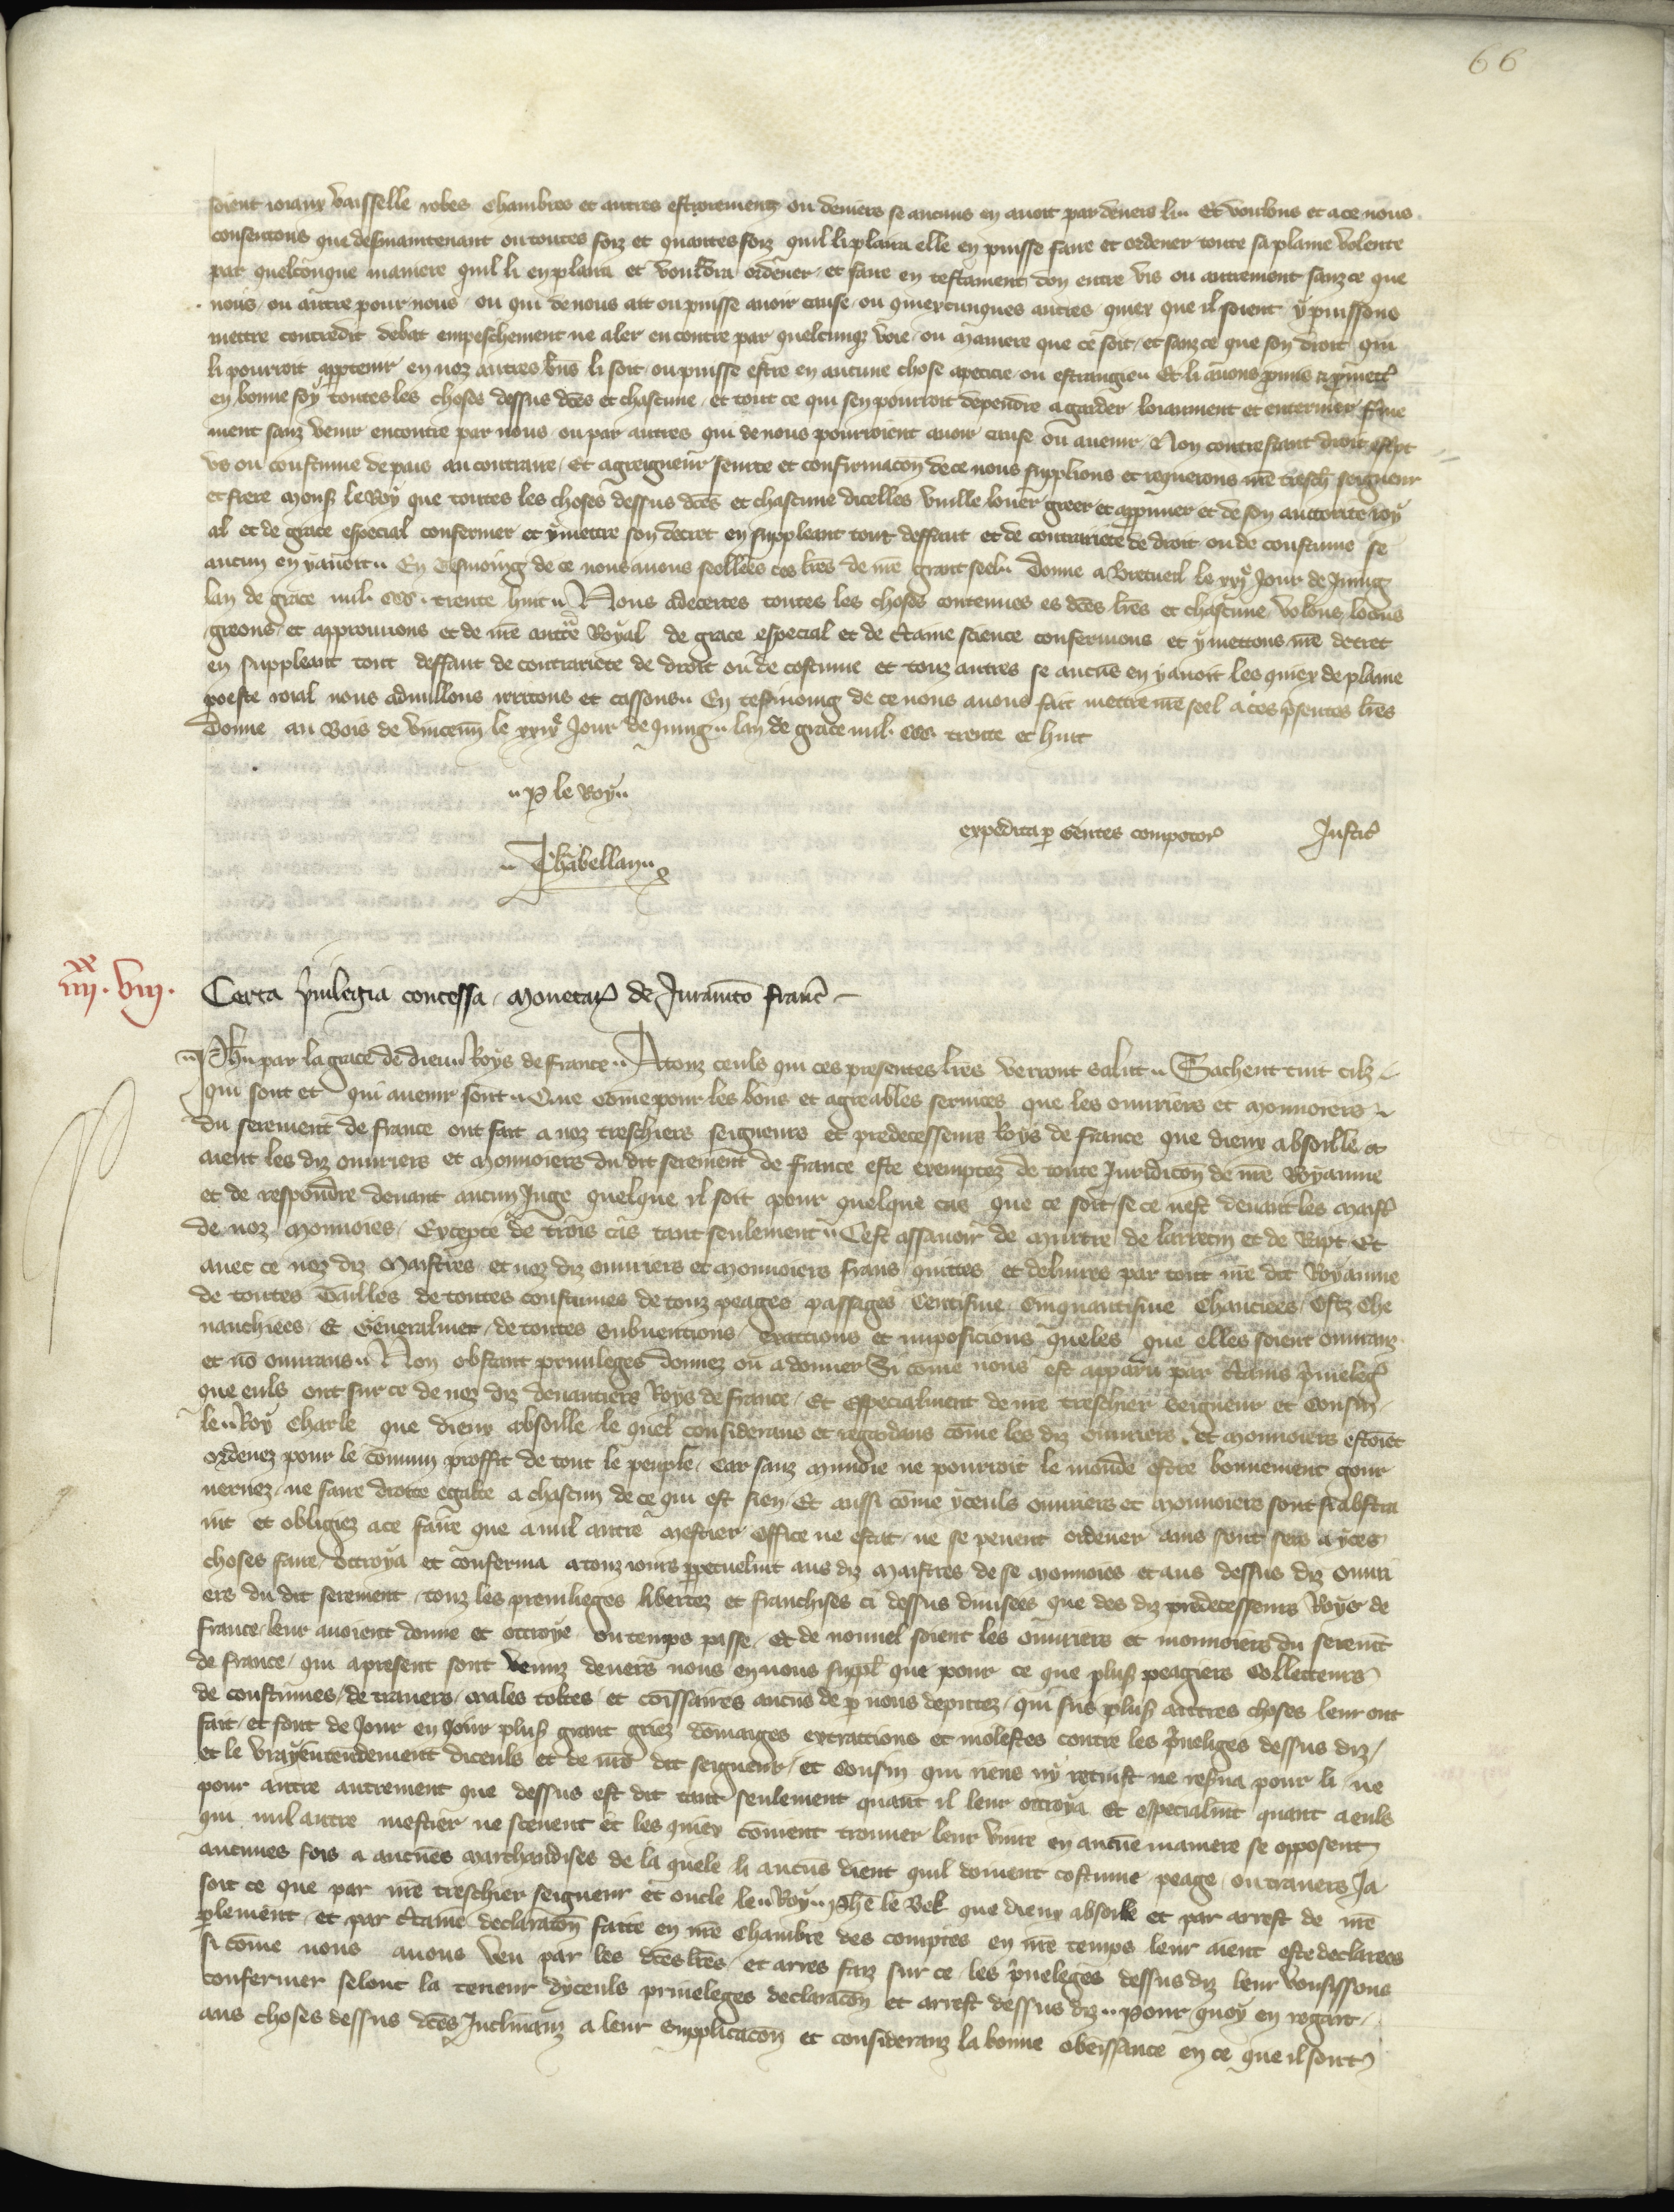 66
soient ioiaux vaisselle robes chambres et autres estoremenz ou deniers se aucuns en auoit par deuers li Et voulons et a ce nous
consentons que desmaintenant ou toutes foiz et quantes foiz quil li plaira elle en puisse faire et ordener toute sa plaine volente
par quelconque maniere quil li en plaira et vouldra ordener et faire en testament don entre vis ou autrement sanz ce que
nous ou autre pour nous ou qui de nous ait ou puisse auoir cause ou quiexcunques autres quiex que il soient y puissons
mettre contredit debat empeschement ne aler encontre par quelcunque voie ou maniere que ce soit et sanz ce que son droit qui
li pourroit appartenir en noz autres bns li soit ou puisse estre en aucune chose apeticie ou estrangie Et li auons pmis et pmett
en bonne foy toutes les choses dessus dces et chascune et tout ce qui sen pourroit dependre a garder loiaument et enteriner ferme
ment sanz venir encontre par nous ou par autres qui de nous pourroient auoir cause ou auenir Non contrestant droit escpt
vs ou coustume de pais au contraire Et a greigneur seurte et confirmacon de ce nous supplions et requerons nre tresch seigneur
et frere mons le Roy que toutes les choses dessus dces et chascune dicelles vuille louer greer et approuuer et de son auctorite roy
al et de grace especial confermer et y mettre son decret en suppleant tout deffaut et de contrariete de droit ou de coustume se
aucun en y auoit En tesmoing de ce nous auons seellees ces lres de nre grant seel Donne a Bretueil le xxje Jour de Juing
lan de grace mil ccc trente huit Nous adecertes toutes les choses contenues es dces lres et chascune volons loons
greons et approuuons et de nre auctte Royal de grace especial et de ctaine science confermons et y mettons nre decret
en suppleant tout deffaut de contrariete de droit ou de costume et touz autres se aucuns en y auoit les quiex de plaine
poeste roial nous adnullons irritons et cassons En tesmoing de ce nous auons fait mettre nre seel a ces psentes lres
Donne au Bois de vincenn le xxix Jour de Juing lan de grace mil ccc trente et huit
P le Roy
expedita p gentes compotor Justic
Chabellan
iiijxx viij
Certa puilegia concessa monetar de Juramto franc
Ph par la grace de dieu Roys de france A touz ceuls qui ces presentes lres verront salut Sachent tuit cilz
qui sont et qui auenir sont Que come pour les bons et agreables seruices que les ouuriers et monnoiers
du serement de france ont fait a noz treschiers seigneurs et predecesseurs Roys de france que dieux absoille
aient les diz ouuriers et monnoiers du dit serement de france este exemptez de toute Juridicon de nre Royaume
et de respondre deuant aucun Juge quelque il soit pour quelque cas que ce soit se ce nest deuant les maist
de noz monnoies Excepte de trois cas tant seulement Cest assauoir de murtre de larrecin et de Rapt Et
auec ce noz diz maistres et noz diz ouuriers et monnoiers frans quittes et deliures par tout nre dit Royaume
de toutes Tailles de toutes coustumes de touz peages passages Centisme Cinquantisme Chauciees Ostz che
uauchiees Et Generalmet de toutes subuentions exactions et imposicions queles que elles soient ouuranz
et no ouurans Non obstant priuileges donnez ou a donner Si come nous est apparu par ctains priueleg
que euls ont sur ce de noz diz deuanciers Roys de france Et Especialment de nre treschier seigneur et Cousin
le Roy Charle que dieux absoille le quel considerans et regardans come les diz ouuriers et monnoiers estoiet
ordenez pour le comun proffit de tout le peuple Car sanz munoie ne pourroit le monde estre bonnement gour
uernez ne faire droite egalte a chascun de ce qui est sien Et aussi come yceuls ouuriers et monnoiers sont si abstra
int et obligiez a ce faire que a nul autre mestier office ne estat ne se peuent ordener ains sont sers a yces
choses faire Octroya et conferma a touz iours ppetuelmt aus diz maistres de se monnoies et aus dessus diz ouuri
ers du dit serement touz les preuilieges libertez et franchises ci dessus diuisees que des diz predecesseurs Roys de
france leur auoient donne et octroye ou temps passe Et de nouuel soient les ouuriers et monnoiers du seremt
de france qui a present sont venuz deuers nous en nous suppl que pour ce que plus peagiers Collecteurs
de coustumes de trauers males toltes et comissaires aucuns de p nous deputez qui sus plus autres choses leur ont
fait et font de Jour en Jour plus grant griez domaiges extractions et molestes contre les pueliges dessus diz
et le vray entendement diceuls et de nre dit seigneur et Cousin qui riens ny retinst ne reserua pour li ne
pour autre autrement que dessus est dit tant seulement quant il leur octroya Et especialmt quant a euls
qui nul autre mestier ne sceuent et les quiex coment trouuer leur viure en aucune maniere se opposent
aucunes fois a aucunes marchandises de la quele li aucuns dient quil doiuent costume peage ou trauers Ja
soit ce que par nre treschier seigneur et oncle le Roy phe le Bel que dieux absoille et par arrest de nre
plement et par ctaine declaracon faite en nre Chambre des comptes en nre temps leur aient este declarees
si come nous auons veu par les dces lres et arres faiz sur ce les pueleges dessus diz leur vousissons
confermer selonc la teneur dyceuls priueleges declaracon et arrest dessus diz Pour quoy en regart
aus choses dessus dces Inclinanz a leur supplicacon et consideranz la bonne obeissance en ce que il sont